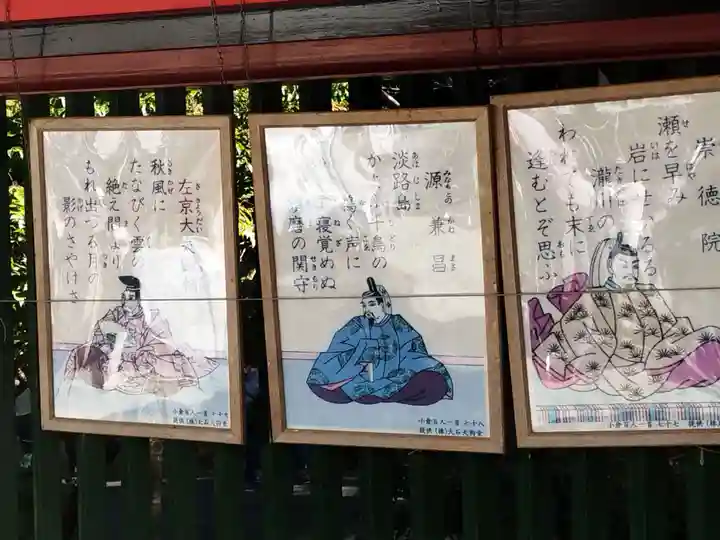 崇徳院
瀬を早み
岩に
瀧川の
われても末に
逢むとぞ思ふ
小倉百人一首 七十七
源兼昌
淡路島
かよふ千鳥の
鳴く声に
寝覚めぬ
須磨の関守
小倉百人一首 七十八
左京大夫
秋風に
たなびく雲の
絶え間より
もれ出づる月の
影のさやけさ
小倉百人一首